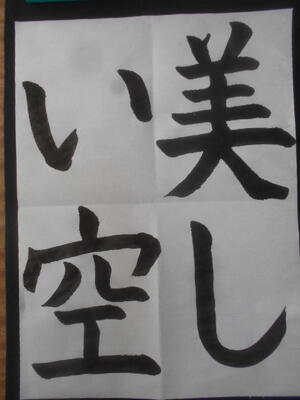 美し
い空